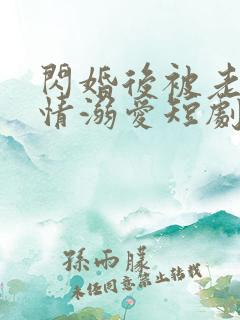 閃婚後被老
情溺愛短劇
孫雨朦
未任同意禁止转载